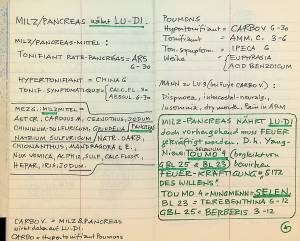 MILZ/PANCREAS nährt LU-DI.
MILZ/PANCREAS-MITTEL:
TONIFIANT RATE-PANCRÉAS = ARS
6-30
HYPERTONIFIANT = CHINA 6
TONIF. SYMPTOMATIQUE
CALC. FL. 30
MEZG.: MILZMITTEL =
CARDUUS M, CEANOTHUS, IODUM
CHININUM SULFURICUM, GRINDELIA
PANCREAS
NATRIUM SULFURICUM, NATR. CARB,
CHIONANTHUS, MANDRAGORA E R.,
NUX VOMICA, ALPHA, SULF, CALC FLUOR.
HEPAR, IRIS, IODUM.
CARBO V. = MILZ & PANCREAS
CARBO = Hypertonifiant Poumons
POUMONS
Hypertonifiant = CARBO V 6-30
Tonifiant = AMM. C. 3-6
Ton. symptom. = IPECA 6
Weihe = EUPHRASIA
ACID BENZOICUM
MANN zu LU 9 (mit Puys CARBO V.):
Dyspnoea, intercostal-neuralg.,
Insomnia, dry mouth, Pain in ARM
MILZ-PANCREAS NÄHRT LU-DI
doch vorhergehend muss FEUER
gekräftigt werden. D.h. Yang-
Niere: TOU MO 4
SELENIUM
GBL 25 & BL 23 bewirken
FEUER-KRÄFTIGUNG = "SITZ
DES WILLENS!"
TOU MO 4 = MINGMENN = SELEN.
BL 23 = TEREBENTHINA 6-12
GBL 25 = BERBERIS 3-12